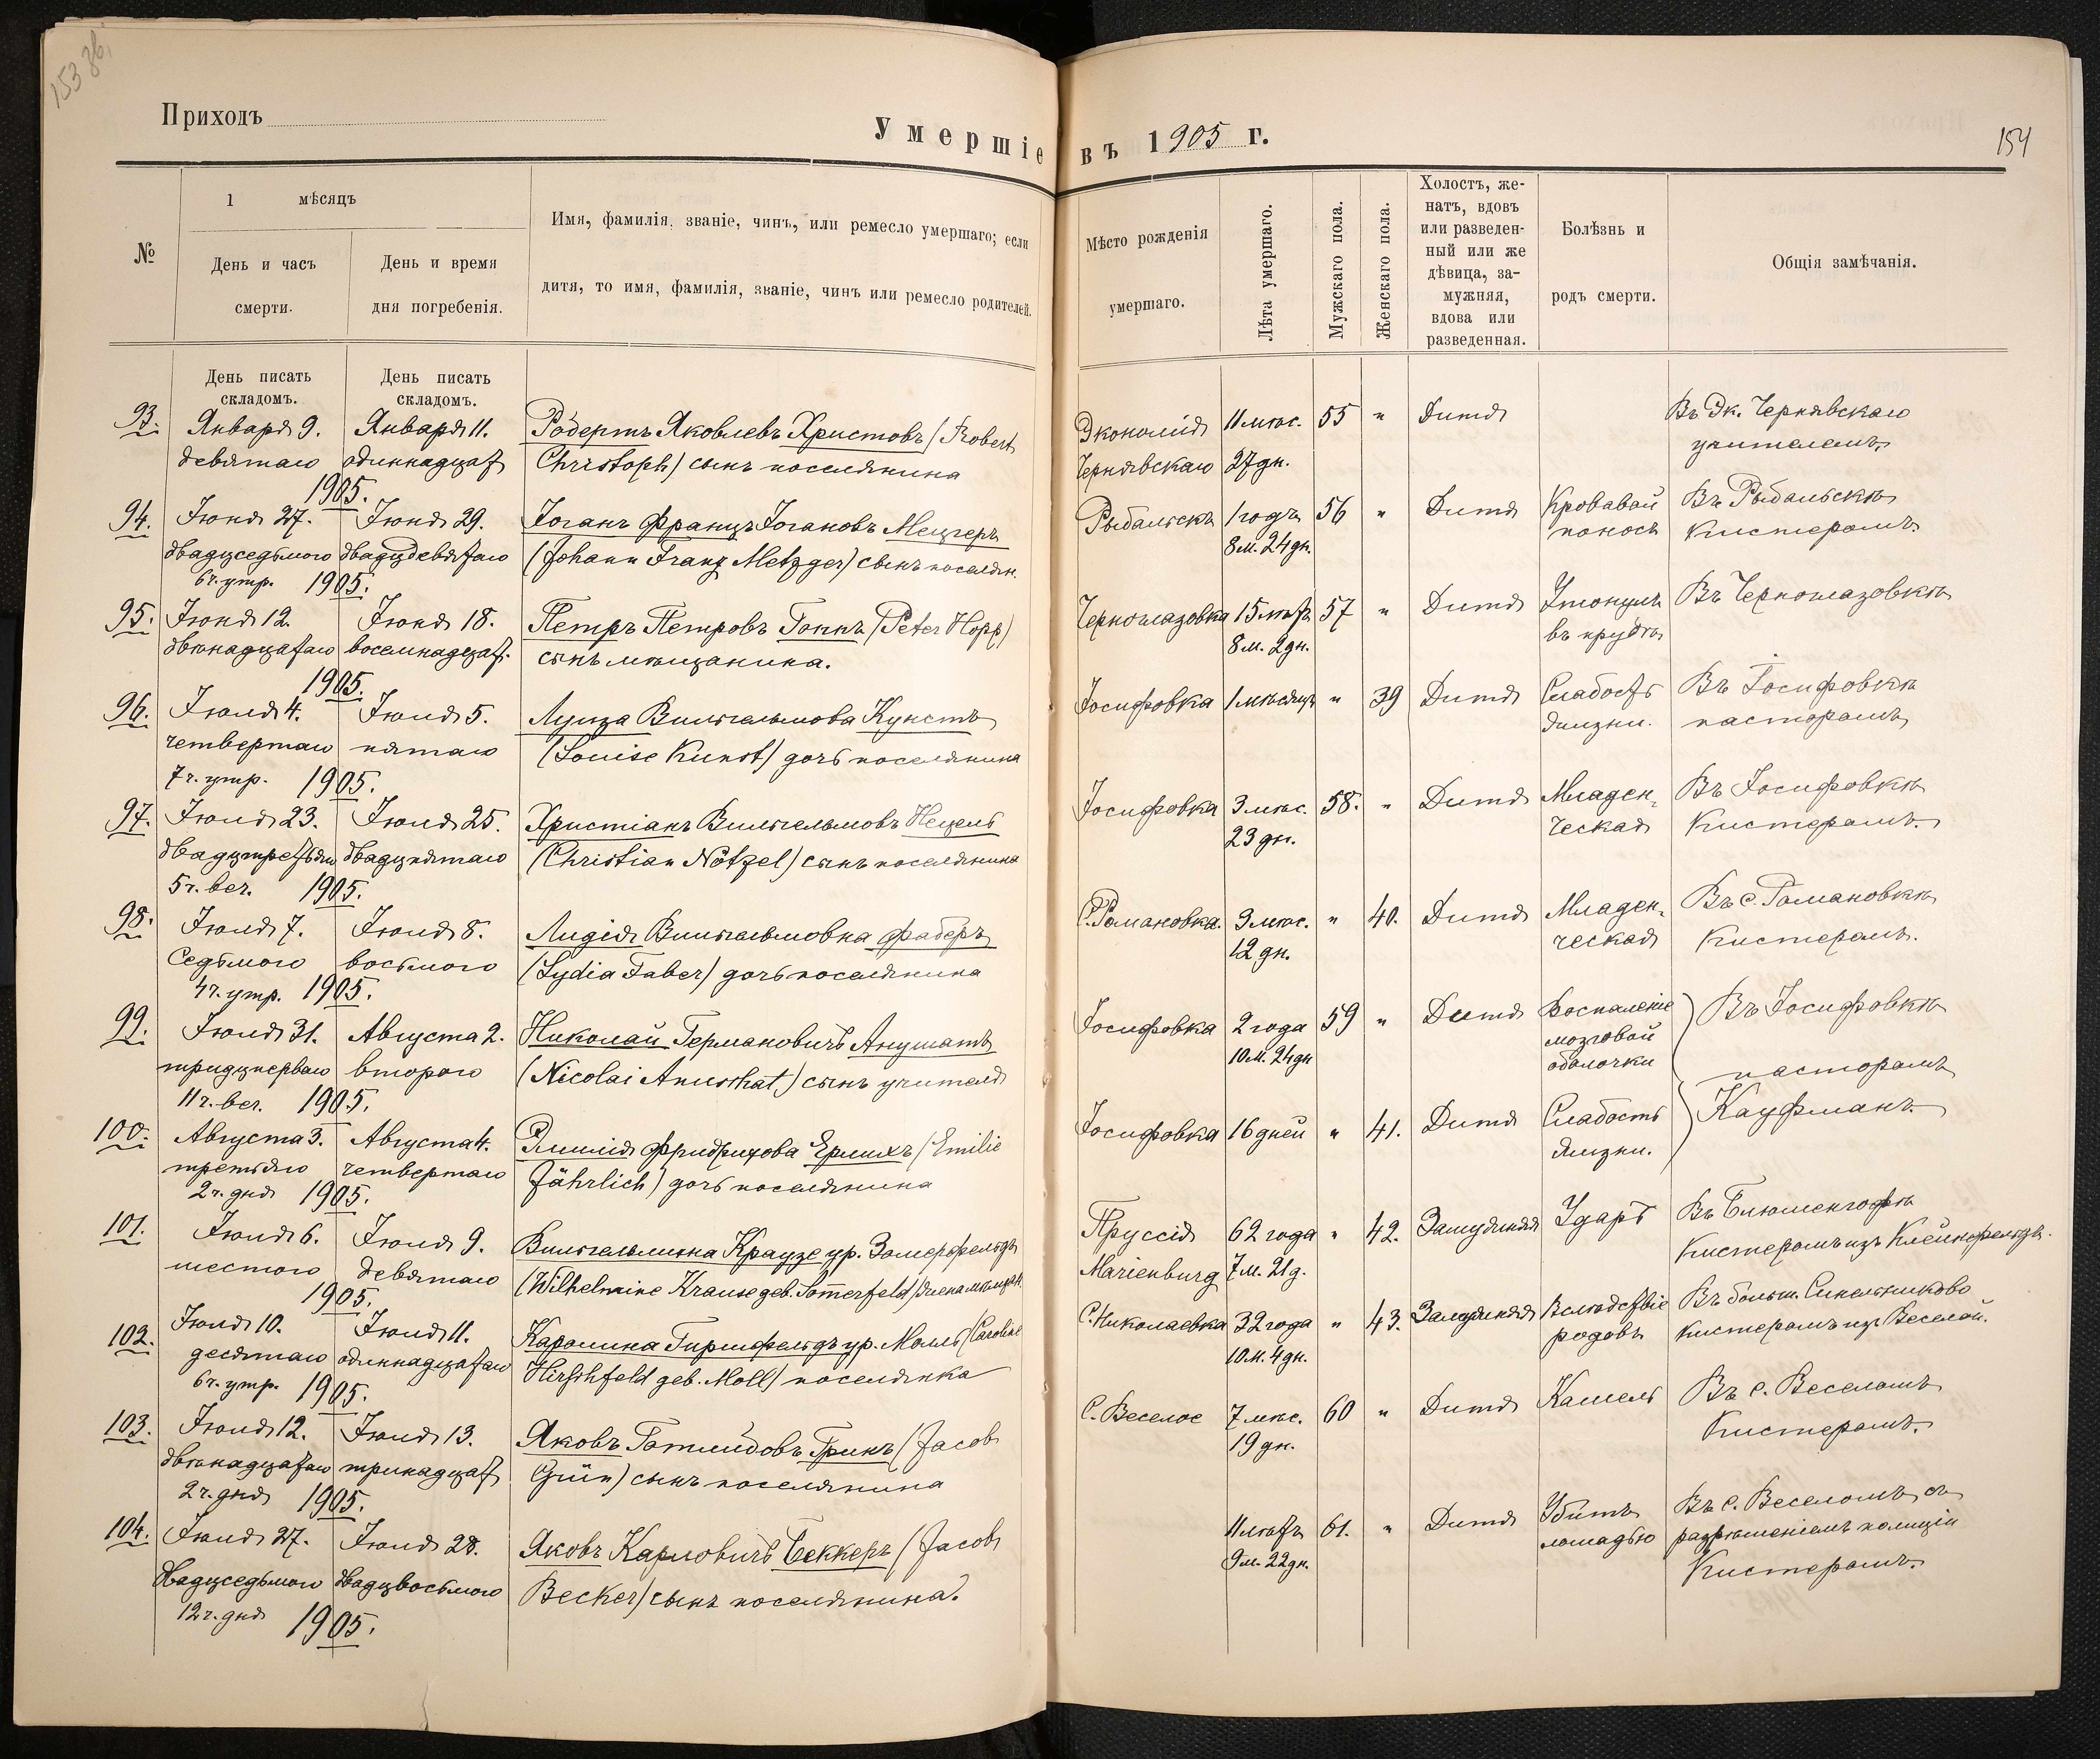 153 зв.
Приходъ
Умершіе въ 1905 г.
154
№
1 мѣсяцъ
День и часъ
смерти.
День и время
дня погребенія.
Имя, фамилія, званіе, чинъ, или ремесло умершаго; если
дитя, то имя, фамилія, званіе, чинъ или ремесло родителей.
Мѣсто рожденія
умершаго.
Лѣта умершаго.
Мужскаго пола.
Женскаго пола.
Холостъ, же-
натъ, вдовъ
или разведен-
ный или же
дѣвица, за-
мужняя,
вдова или
разведенная.
Болѣзнь и
родъ смерти.
Общія замѣчанія.
День писать
складомъ.
День писать
складомъ.
93. Января 9. Января 11. Робертъ Яковлевъ Христовъ (Robert
девятаго одиннадцат Christoph) сынъ поселянина
1905.
Экономія 11 мѣс. 55 " Дитя Въ Эк. Чернявскаго
Чернявскаго 27 дн. учителемъ
94. Іюня 27. Іюня 29. Іоганъ Францъ Іогановъ Мецгеръ
двадцседьмого двадцдевятаго (Johann Franz Metzger) сынъ поселян.
6 ч. утр. 1905.
Рыбальскъ 1 годъ 56 " Дитя Кровавый Въ Рыбальскѣ
8 м. 24 дн. поносъ Кистеромъ.
95. Іюня 12. Іюня 18. Петръ Петровъ Гоппъ (Peter Hopp)
двѣнадцатаго восемнадцат. сынъ мѣщанина.
1905.
Черноглазовка 15 лѣтъ 57 " Дитя Утонулъ Въ Черноглазовкѣ
8 м. 2 дн. въ прудѣ
96. Іюля 4. Іюля 5. Луиза Вильгельмова Кунстъ
четвертаго пятаго (Louise Kunst) дочь поселянина
7 ч. утр. 1905.
Іосифовка 1 мѣсяцъ " 39 Дитя Слабость Въ Іосифовкѣ
жизни. пасторомъ
97. Іюля 23. Іюля 25. Христіанъ Вильгельмовъ Нецель
двадцтретьяго двадцпятаго (Christian Nötzel) сынъ поселянина
5 ч. веч. 1905.
Іосифовка 3 мѣс. 58. " Дитя Младен- Въ Іосифовкѣ
23 дн. ческая Кистеромъ.
98. Іюля 7. Іюля 8. Лидія Вильгельмовна Фаберъ
Седьмого восьмого (Lydia Faber) дочь поселянина
4 ч. утр. 1905.
С. Романовка. 3 мѣс. " 40. Дитя Младен- Въ с. Романовкѣ
12 дн. ческая Кистеромъ.
99. Іюля 31. Августа 2. Николай Германовичъ Анушатъ
тридцперваго второго (Nicolai Anuschat) сынъ учителя
11 ч. веч. 1905.
Іосифовка 2 года 59 " Дитя Воспаленіе Въ Іосифовкѣ
10 м. 24 дн мозговой
оболочки пасторомъ
100. Августа 3. Августа 4. Эмилія Фридрихова Ерлихъ (Emilie
третьяго четвертаго Jährlich) дочь поселянина
2 ч. дня 1905.
Іосифовка 16 дней " 41. Дитя Слабость Кауфманъ.
жизни.
101. Іюля 6. Іюля 9. Вильгельмина Краузе ур. Зомерфельдъ
шестого девятаго (Wilhelmine Krause geb. Somerfeld) жена мѣщан.
1905.
Пруссія 62 года " 42. Замужняя Ударъ Въ Блюменгофѣ
Marienburg 7 м. 21 д. Кистеромъ изъ Клейнфельдъ.
102. Іюля 10. Іюля 11. Каролина Гиршфельдъ ур. Молль (Caroline
десятаго одиннадцатаго Hirschfeld geb. Moll) поселянка
6 ч. утр. 1905.
С. Николаевка 32 года " 43. Замужняя Вслѣдствіе Въ больш. Синельниково
10 м. 4 дн. родовъ Кистеромъ изъ Веселой.
103. Іюля 12. Іюля 13. Яковъ Готлибовъ Гринъ (Jacob
двѣнадцатаго тринадцат Grün) сынъ поселянина
2 ч. дня 1905.
С. Веселое 7 мѣс. 60 " Дитя Кашель Въ с. Веселомъ
19 дн. Кистеромъ.
104. Іюля 27. Іюля 28. Яковъ Карловичъ Беккеръ (Jacob
двадцседьмого двадцвосьмого Becker) сынъ поселянина.
12 ч. дня 1905.
11 лѣтъ 61. " Дитя Убитъ Въ с. Веселомъ съ
9 м. 22 дн. лошадью разрѣшеніемъ полиціи
Кистеромъ.